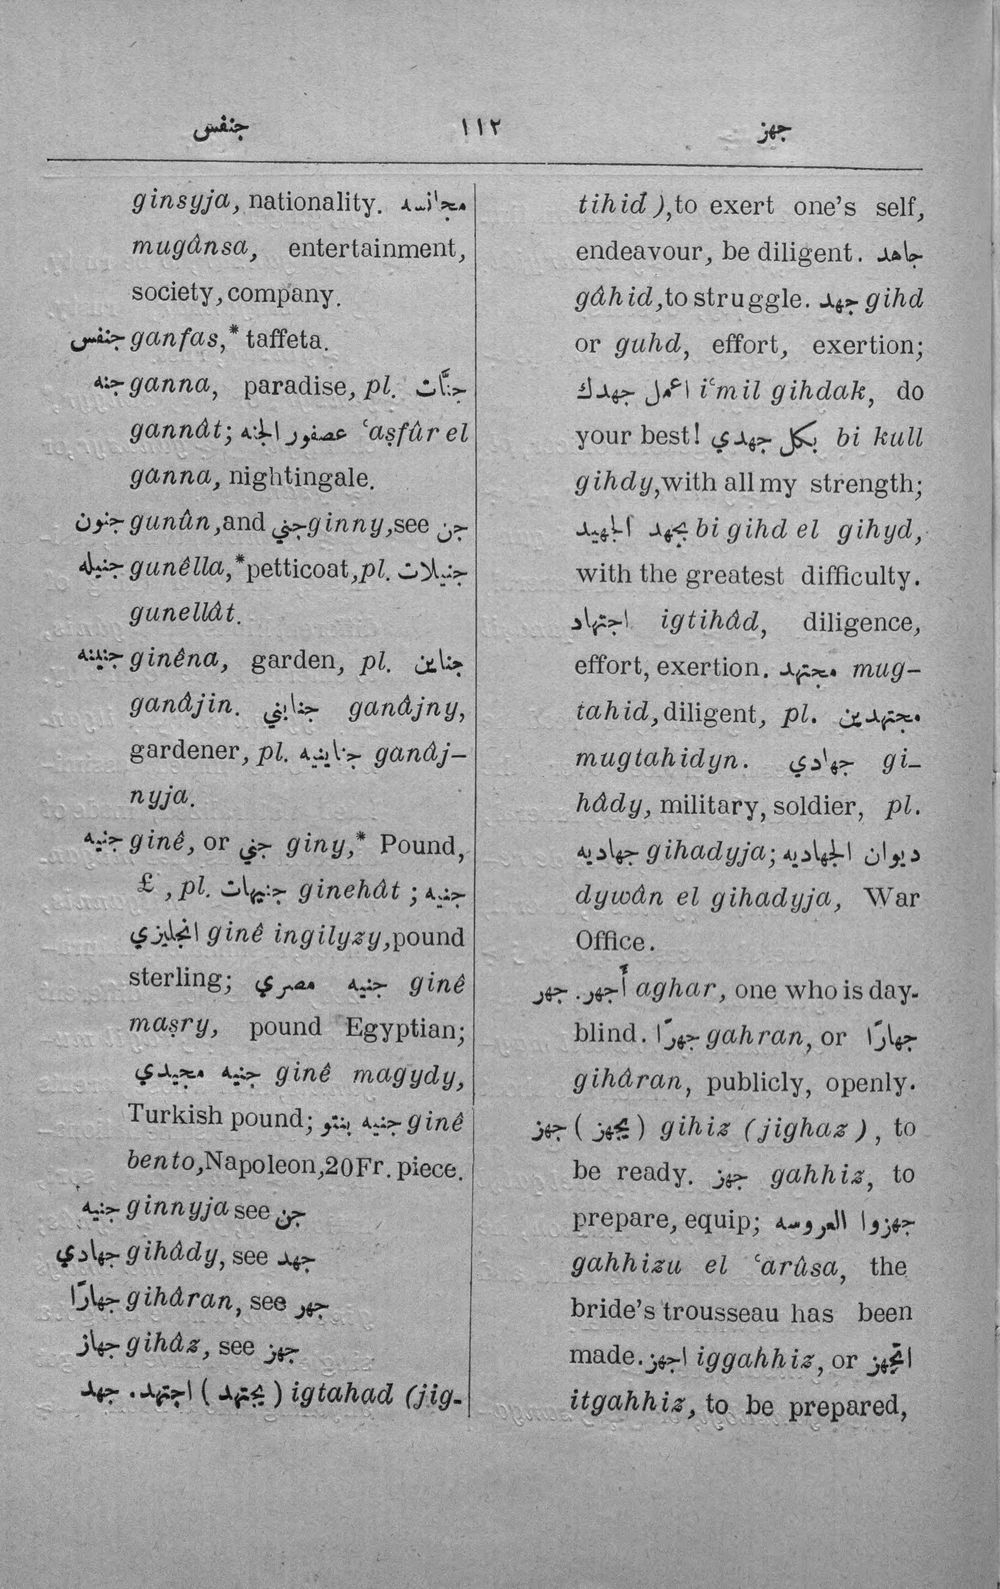 جنفس ١١٢ جهز
ginsyja, nationality. مجانسه
mugânsa, entertainment,
society, company.
جنفس ganfas,* taffeta.
جنه ganna, paradise, pl. جنَّات
gannât; عصفور الجنه ʿaṣfûr el
ganna, nightingale.
جنون gunûn, and جني ginny, see جن
جنيله gunêlla,* petticoat, pl. جنيلات
gunellât.
جنينه ginêna, garden, pl. جناين
ganâjin. جنايني ganâjny,
gardener, pl. جناينيه ganâj-
nyja.
جنيه ginê, or جني giny,* Pound,
£, pl. جنيهات ginehât; جنيه
انجليزي ginê ingilyzy, pound
sterling; جنيه مصري ginê
maṣry, pound Egyptian;
جنيه مجيدي ginê magydy,
Turkish pound; جنيه بنتو ginê
bento, Napoleon, 20Fr. piece.
جنيه ginnyja see جن
جهادي gihâdy, see جهد
جهارًا gihâran, see جهر
جهاز gihâz, see جهز
جهد. اجتهد (يجتهد) igtahad (jig-
tihid), to exert one's self,
endeavour, be diligent. جاهد
gâhid, to struggle. جهد gihd
or guhd, effort, exertion;
اعمل جهدك iʿmil gihdak, do
your best! بكل جهدي bi kull
gihdy, with all my strength;
بجهد الجهيد bi gihd el gihyd,
with the greatest difficulty.
اجتهاد igtihâd, diligence,
effort, exertion. مجتهد mug-
tahid, diligent, pl. مجتهدين
mugtahidyn. جهادي gi-
hâdy, military, soldier, pl.
جهاديه gihadyja; ديوان الجهاديه
dywân el gihadyja, War
Office.
جهر. أجهر aghar, one who is day-
blind. جهرًا gahran, or جهارًا
gihâran, publicly, openly.
جهز (يجهز) gihiz (jighaz), to
be ready. جهز gahhiz, to
prepare, equip; جهزوا العروسه
gahhizu el ʿarûsa, the
bride's trousseau has been
made. اجهز iggahhiz, or اتجهز
itgahhiz, to be prepared,